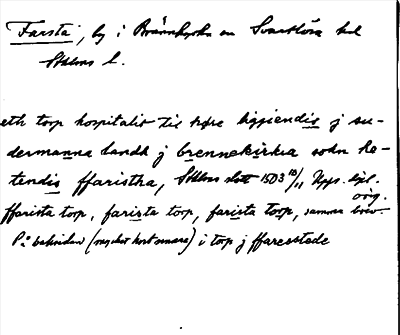 Farsta, by i Brännkyrka sn Svartlösa hd
Sthlms l.
eth torp hospitalit til høre liggiendis j su-
dermanna landh j brennekirkia sokn he-
tendis ffaristha, Sthlms slott 1503 10/11 Upps. bibl.
orig.
ffarista torp, farista torp, farista torp, samma brev.
På baksidan (mycket kort senare) i torp j ffaresstede